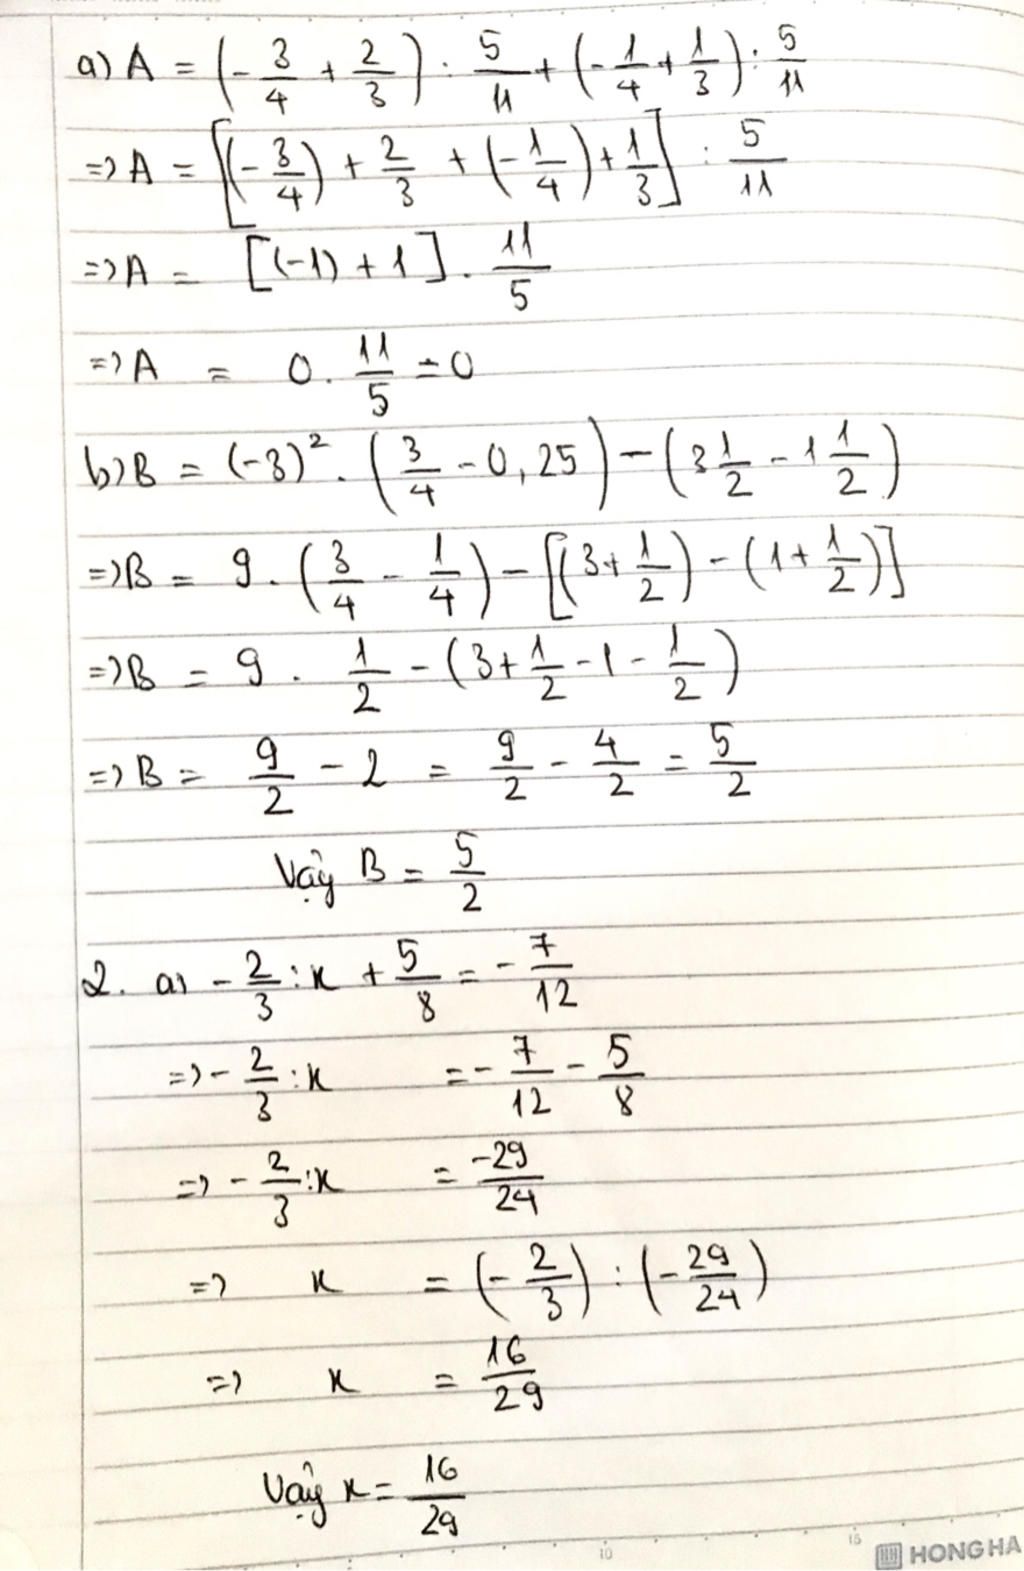 a) A = (-3/4 + 2/3) : 5/11 + (-1/4 + 1/3) : 5/11
=> A = [(-3/4) + 2/3 + (-1/4) + 1/3] : 5/11
=> A = [(-1) + 1] . 11/5
=> A = 0 . 11/5 = 0
b) B = (-3)² . (3/4 - 0,25) - (3 1/2 - 1 1/2)
=> B = 9 . (3/4 - 1/4) - [(3 + 1/2) - (1 + 1/2)]
=> B = 9 . 1/2 - (3 + 1/2 - 1 - 1/2)
=> B = 9/2 - 2 = 9/2 - 4/2 = 5/2
Vậy B = 5/2
2. a) -2/3 : x + 5/8 = -7/12
=> -2/3 : x = -7/12 - 5/8
=> -2/3 : x = -29/24
=> x = (-2/3) : (-29/24)
=> x = 16/29
Vậy x = 16/29
10 15 HONG HA